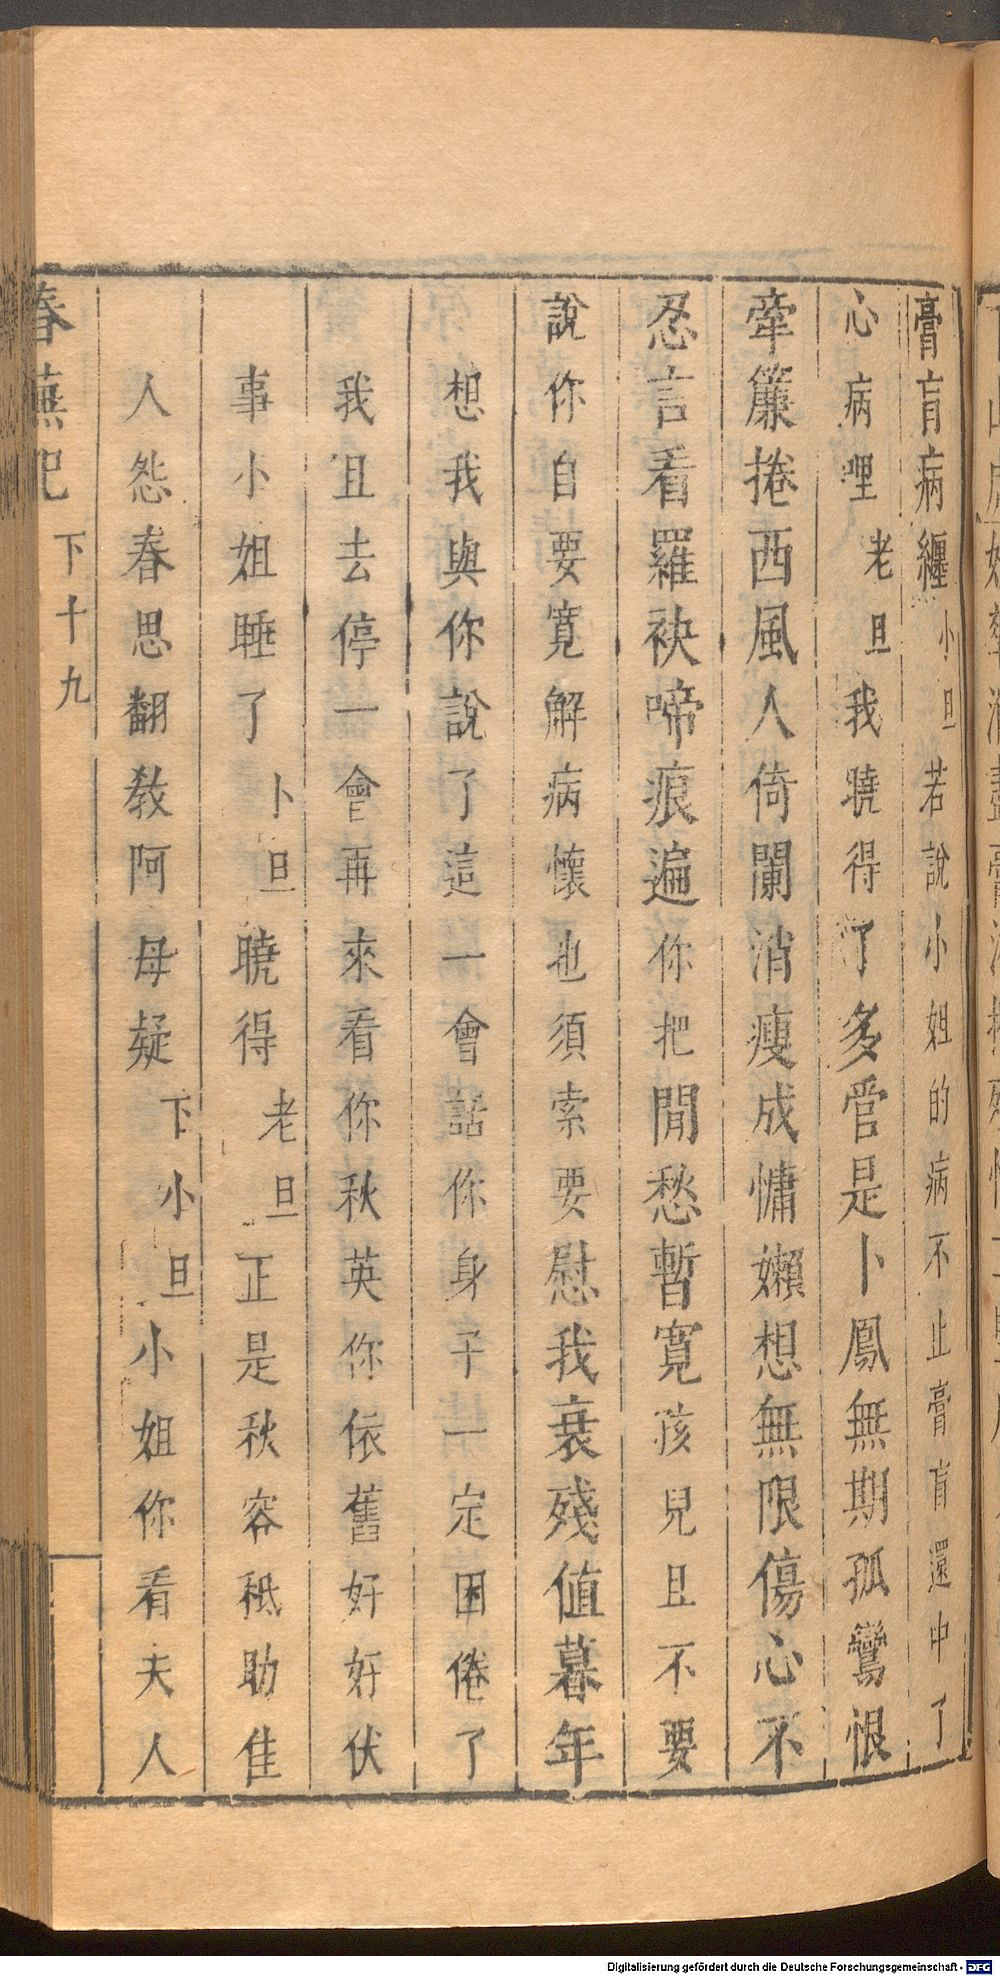 膏肓病纏小旦若說小姐的病不止膏肓還中了
心病哩老旦我曉得了多管是卜鳳無期孤鸞恨
牽簾捲西風人倚闌消瘦成慵嬾想無限傷心不
忍言看羅袂啼痕遍你把閒愁暫寬孩兒且不要
說你自要寬解病懷也須索要慰我衰殘值暮年
想我與你說了這一會話你身子一定困倦了
我且去停一會再來看你秋英你依舊好好伏
事小姐睡了卜旦曉得老旦正是秋容秪助佳
人怨春思翻教阿母疑下小旦小姐你看夫人
春蕪記 下十九
Digitalisierung gefördert durch die Deutsche Forschungsgemeinschaft - DFG